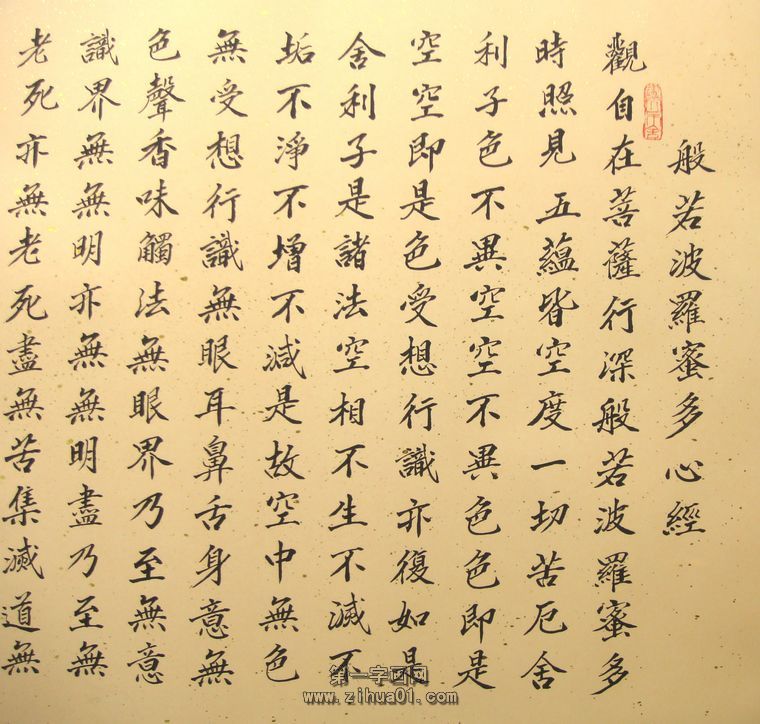 般若波羅蜜多心經
觀自在菩薩行深般若波羅蜜多
時照見五蘊皆空度一切苦厄舍
利子色不異空空不異色色即是
空空即是色受想行識亦復如是
舍利子是諸法空相不生不滅不
垢不淨不增不減是故空中無色
無受想行識無眼耳鼻舌身意無
色聲香味觸法無眼界乃至無意
識界無無明亦無無明盡乃至無
老死亦無老死盡無苦集滅道無
第一字画网
www.zihua01.com